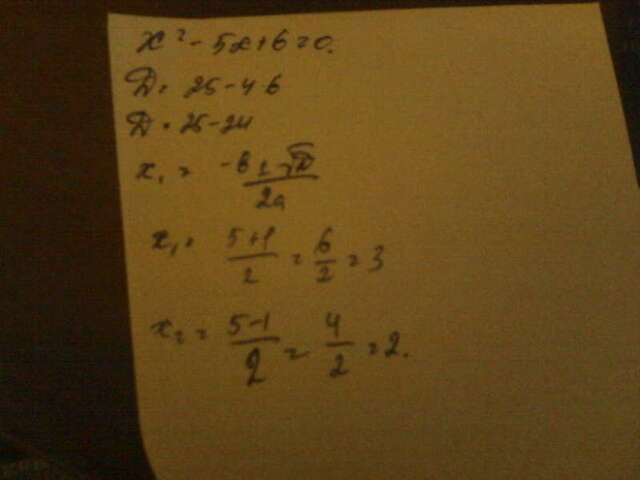 x² - 5x + 6 = 0.
D = 25 - 4·6
D = 25 - 24
x₁ = (-b ± √D)/(2a)
x₁ = (5+1)/2 = 6/2 = 3
x₂ = (5-1)/2 = 4/2 = 2.